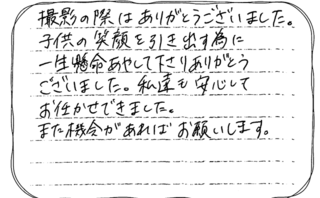 撮影の際はありがとうございました。
子供の笑顔を引き出す為に
一生懸命あやして下さりありがとう
ございました。私達も安心して
お任かせできました。
また機会があればお願いします。